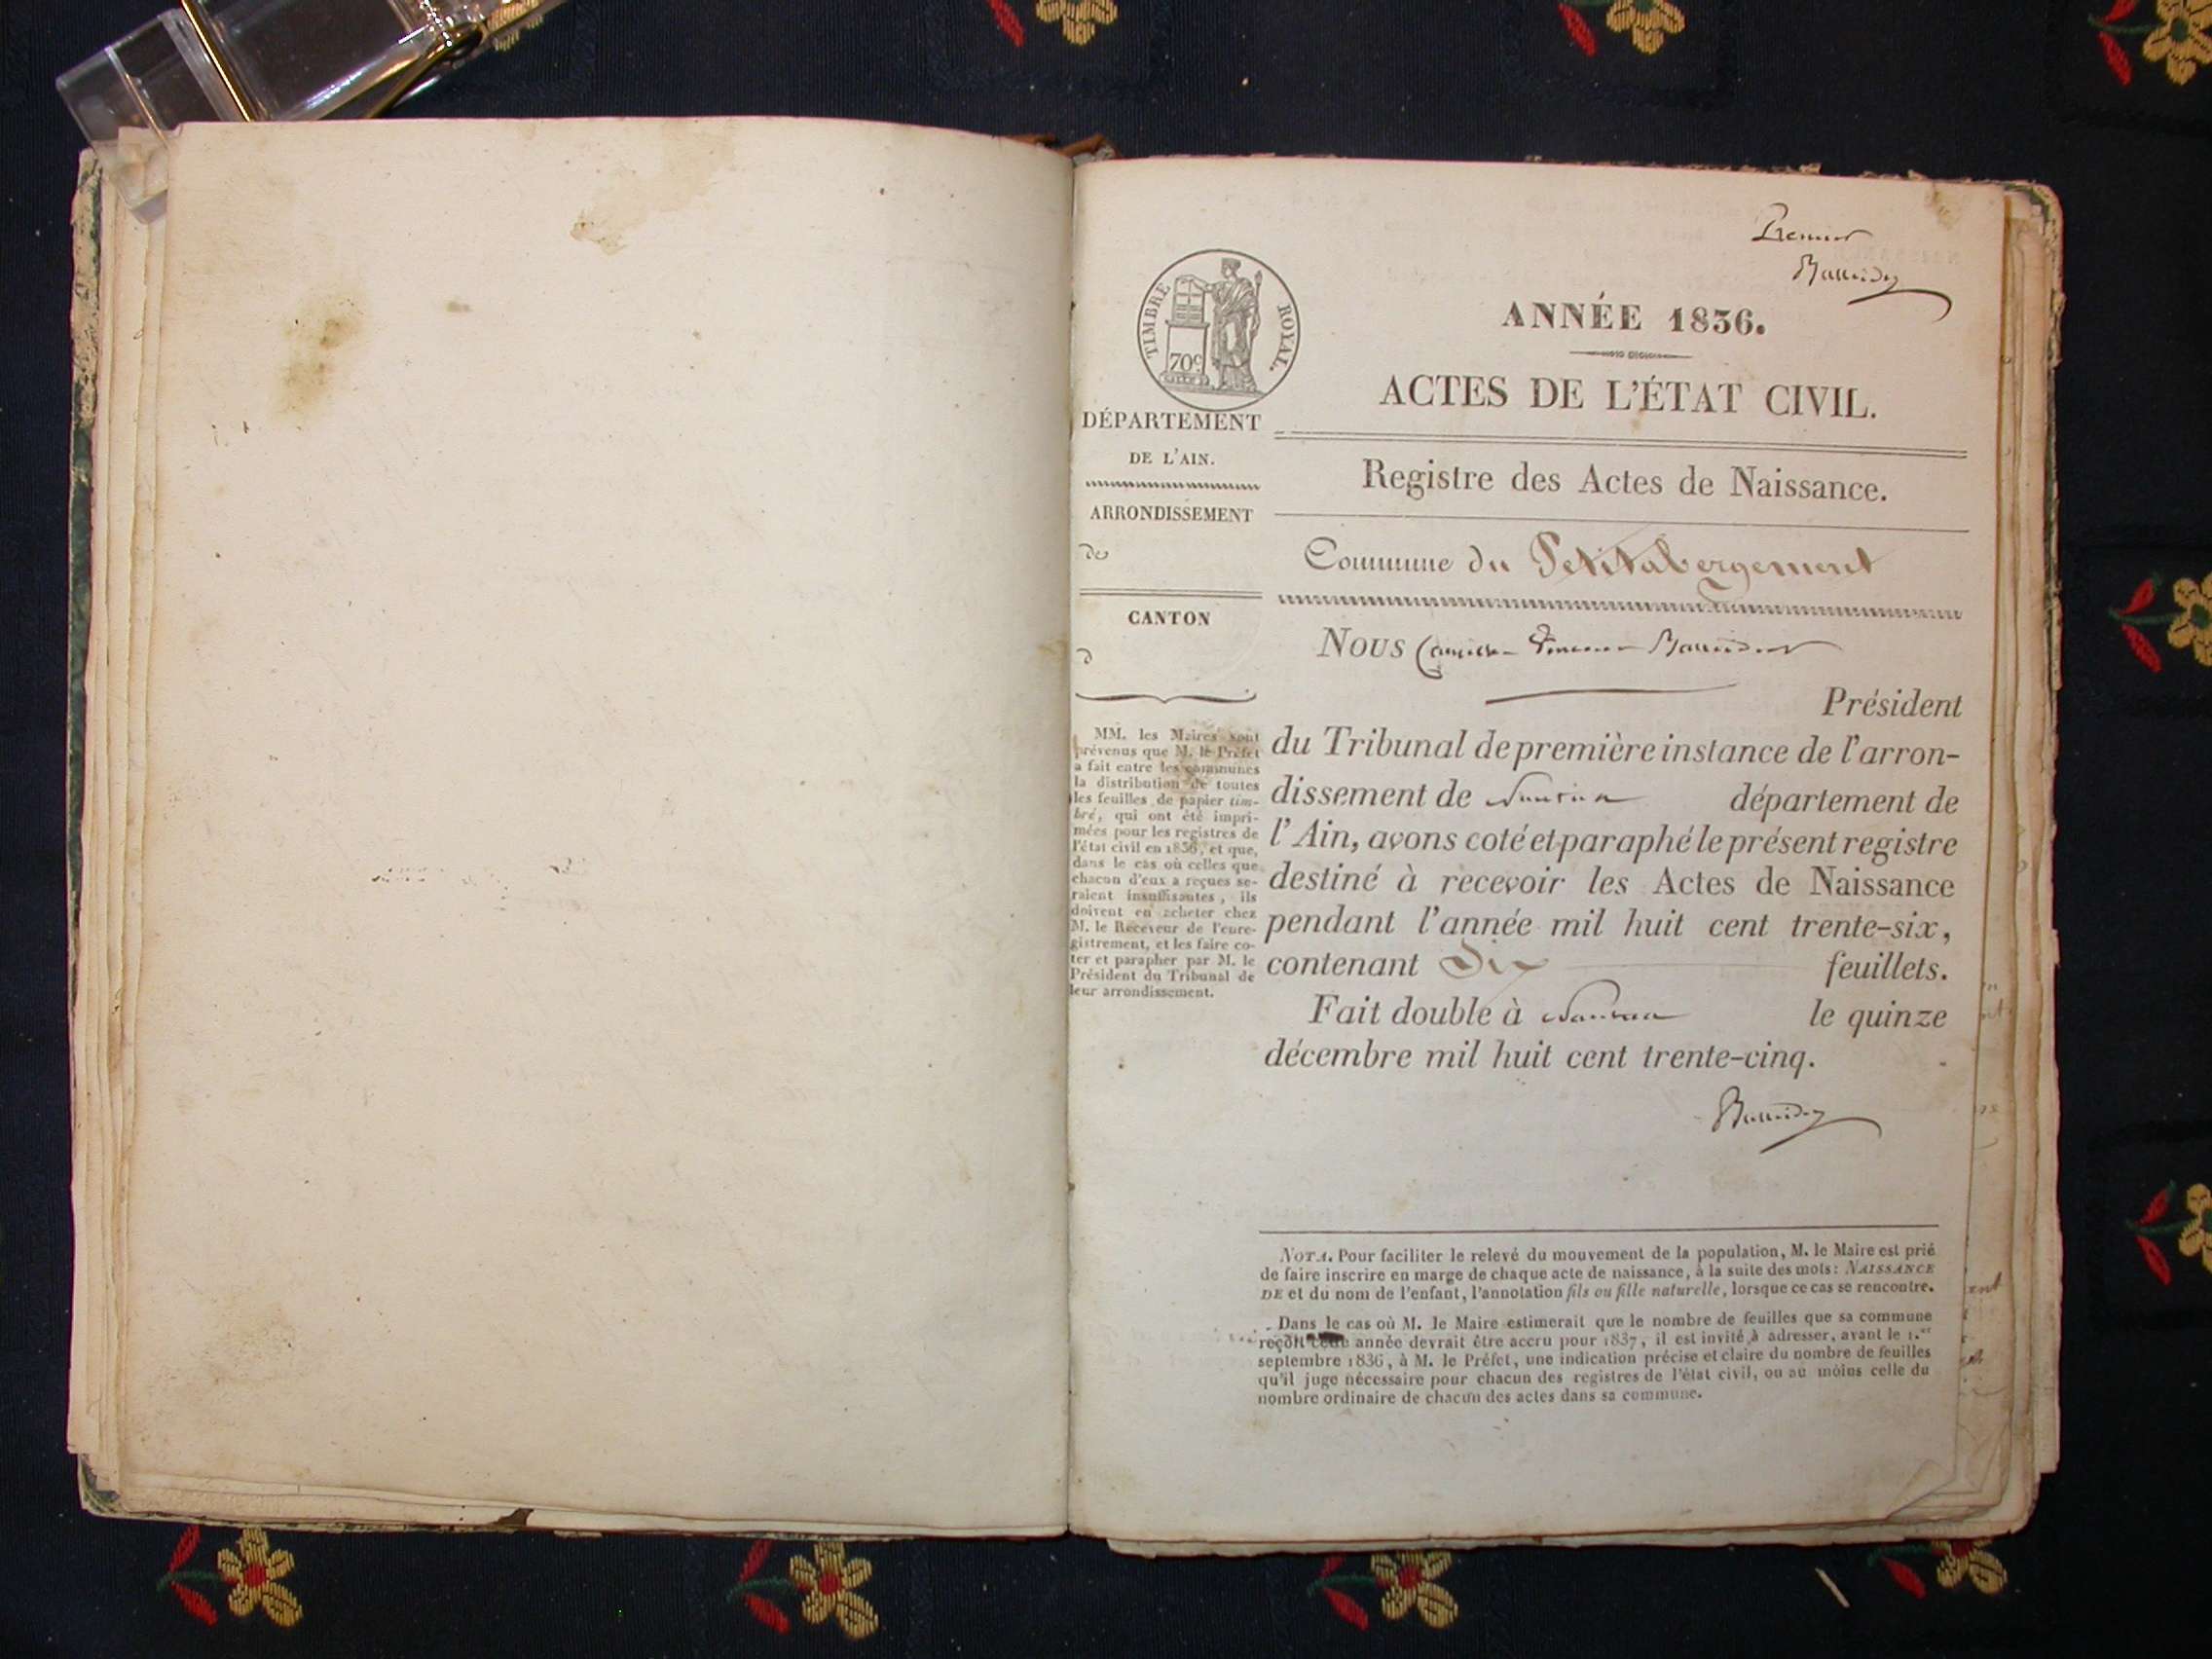 Premier
TIMBRE ROYAL.
70c
ANNÉE 1836.
ACTES DE L'ÉTAT CIVIL.
DÉPARTEMENT
DE L'AIN.
ARRONDISSEMENT
de
CANTON
d
MM. les Maires sont
prévenus que M. le Préfet
a fait entre les communes
la distribution de toutes
les feuilles de papier tim-
bré, qui ont été impri-
mées pour les registres de
l'état civil en 1836, et que,
dans le cas où celles que
chacun d'eux a reçues se-
raient insuffisantes, ils
doivent en acheter chez
M. le Receveur de l'enre-
gistrement, et les faire co-
ter et parapher par M. le
Président du Tribunal de
leur arrondissement.
Registre des Actes de Naissance.
Commune du Petitabergement
Nous
Président
du Tribunal de première instance de l'arron-
dissement de Nantua département de
l'Ain, avons coté et paraphé le présent registre
destiné à recevoir les Actes de Naissance
pendant l'année mil huit cent trente-six,
contenant Dix feuillets.
Fait double à Nantua le quinze
décembre mil huit cent trente-cinq.
NOTA. Pour faciliter le relevé du mouvement de la population, M. le Maire est prié
de faire inscrire en marge de chaque acte de naissance, à la suite des mots: NAISSANCE
DE et du nom de l'enfant, l'annotation fils ou fille naturelle, lorsque ce cas se rencontre.
Dans le cas où M. le Maire estimerait que le nombre de feuilles que sa commune
reçoit cette année devrait être accru pour 1837, il est invité à adresser, avant le 1.er
septembre 1836, à M. le Préfet, une indication précise et claire du nombre de feuilles
qu'il juge nécessaire pour chacun des registres de l'état civil, ou au moins celle du
nombre ordinaire de chacun des actes dans sa commune.